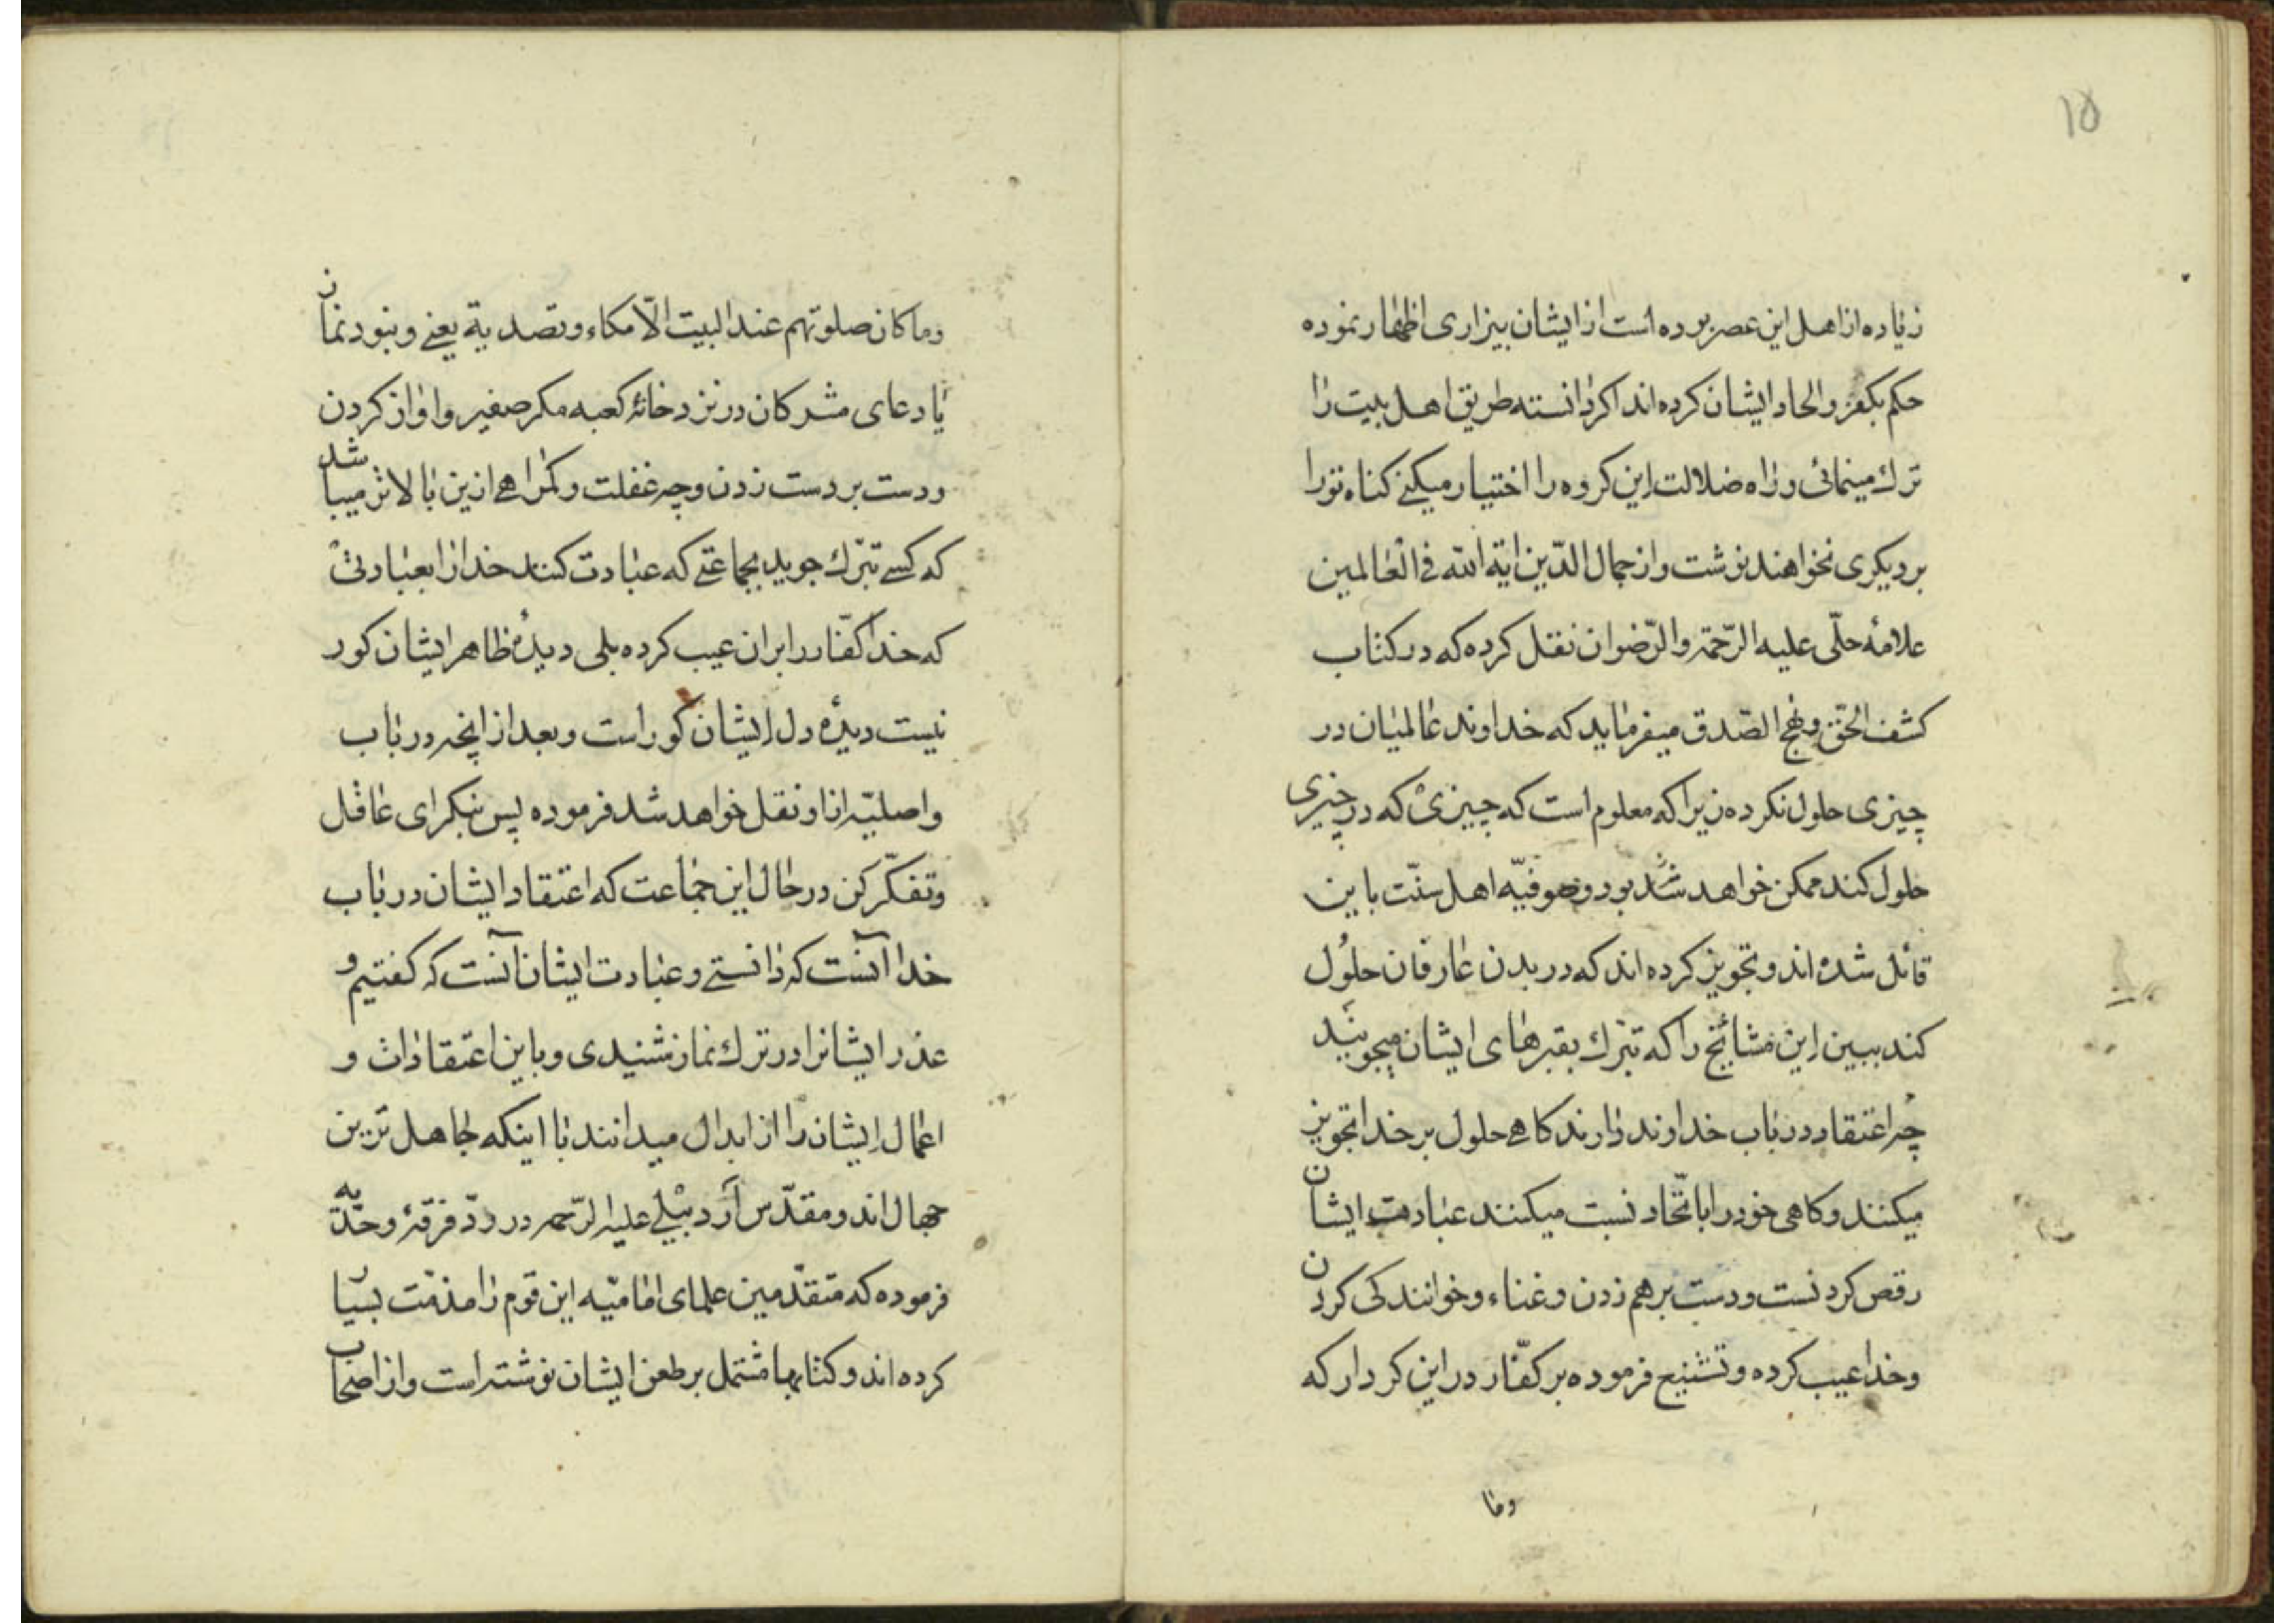 ۱۵
زیاده از اهل این عصر بوده است از ایشان بیزاری اظهار نموده
حکم بکفر و الحاد ایشان کرده اند اکر دانسته طریق اهل بیت را
ترك مینمائی و راه ضلالت این کروه را اختیار میکنے کناه تو را
بر دیکری نخواهند نوشت و از جمال الدّین ایة الله فی العالمین
علامهٔ حلّی علیه الرّحمة و الرّضوان نقل کرده که در کتاب
کشف الحقّ و نهج الصّدق میفرماید که خداوند عالمیان در
چیزی حلول نکرده زیرا که معلوم است که چیزیْ که در چیزی
حلول کند ممکن خواهد شد بود و صوفیّه اهل سنّت باین
قائل شده اند و تجویز کرده اند که در بدن عارفان حلُول
کند ببین این مشایخ را که تبرّك بقبرهای ایشان میجویند
چُه اعتقاد در باب خداوند دارند کاهے حلول بر خدا تجویز
میکنند و کاهی خود را با اتّحاد نسبت میکنند عبادت ایشان
رقص کردنست و دست بر هم زدن و غناء و خوانندکی کردن
و خدا عیب کرده و تشنیع فرموده بر کفّار در این کردار که
وما
وما کان صلوتهم عند البیت الّا مکاء و تصدیة یعنے و نبود نمان
یا دعای مشرکان در نزد خانهٔ کعبه مکر صفیر و اواز کردن
و دست بر دست زدن و چه غفلت و کمراهے از ین بالاتر میباشد
که کسے تبرّك جوید بجماعتے که عبادت کنند خدا را بعبادتیْ
که خدا کفّار را بران عیب کرده بلی دیدهٔ ظاهر ایشان کور
نیست دیدهٔ دل ایشان کور است و بعد از انچه در باب
واصلیّه از او نقل خواهد شد فرموده پس بنکر ای عاقل
و تفکّر کن در حال این جماعت که اعتقاد ایشان در باب
خدا آنست که دانستے و عبادت ایشان آنست که کفتیم و
عذر ایشانرا در ترك نماز شنیدی و باین اعتقادات و
اعمال ایشان را از ابدال میدانند با اینکه جاهل ترین
جهال اند و مقدّس اردبیلے علیه الرّحمه در ردّ فرقهٔ وحدّتیه
فرموده که متقدّمین علمای امامیّه این قوم را مذمّت بسیار
کرده اند و کتابها مشتمل بر طعن ایشان نوشته است و از اصحاب